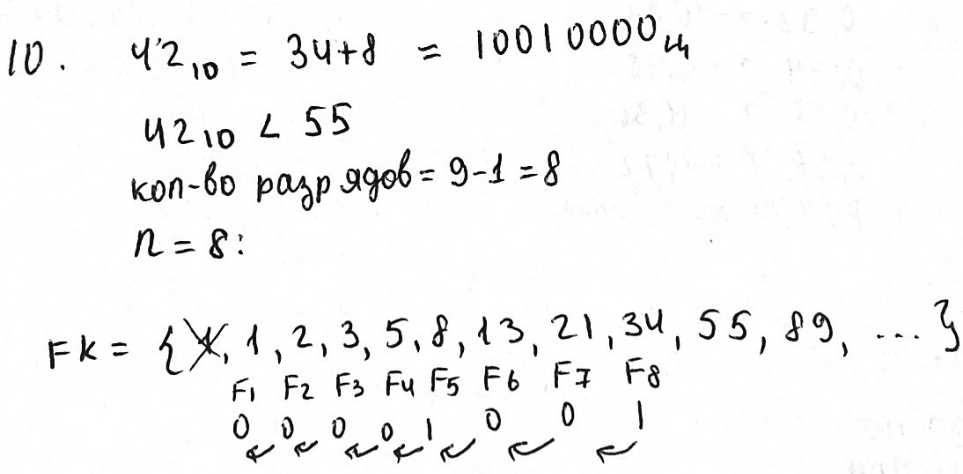 10. 42₁₀ = 34+8 = 10010000ц
42₁₀ < 55
кол-во разрядов = 9-1 = 8
n = 8:
Fk = {1, 1, 2, 3, 5, 8, 13, 21, 34, 55, 89, ...}
F1 F2 F3 F4 F5 F6 F7 F8
0 0 0 0 1 0 0 1